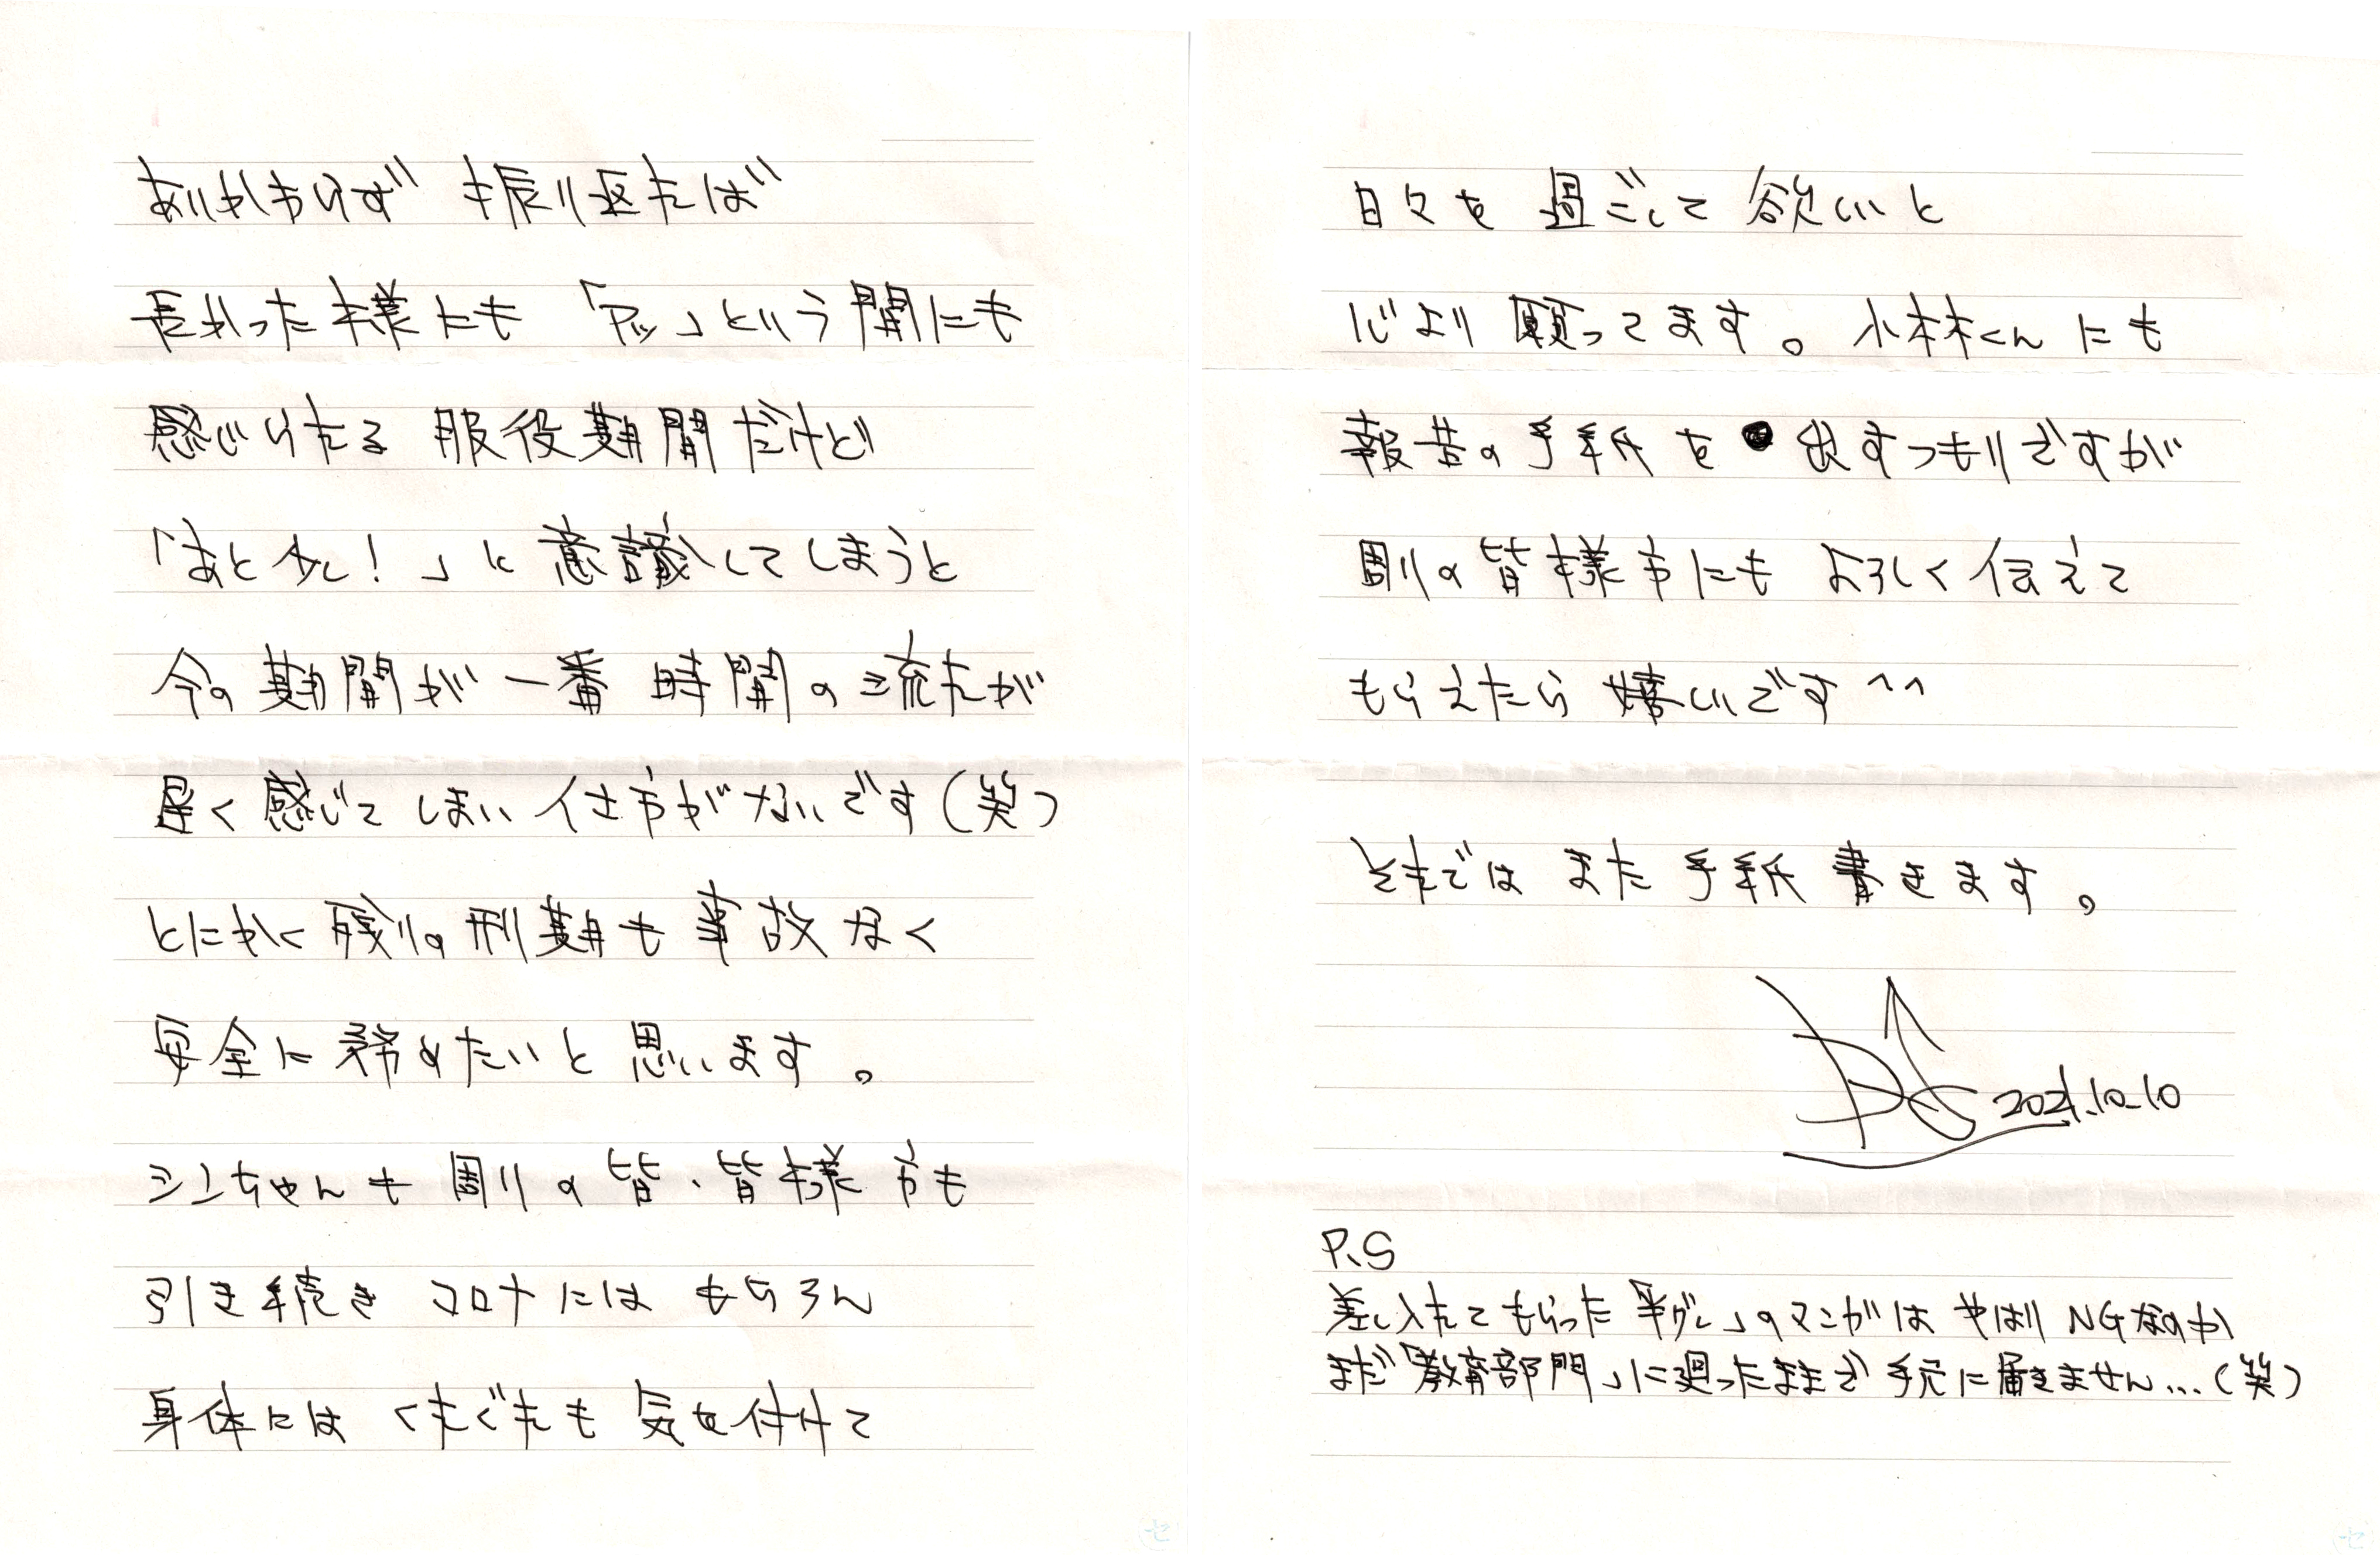 あいかわらず 振り返れば
長かった様にも 「アッ」という間にも
感じられる 服役期間だけど
「あと少し！」と 意識してしまうと
今の期間が 一番 時間の流れが
遅く感じて しまい 仕方がないです（笑）
とにかく 残りの刑期も 事故なく
安全に 務めたいと 思います。
シンちゃんも 周りの 皆、皆様方も
引き続き コロナには もちろん
身体には くれぐれも 気を付けて
日々を 過ごして 欲しいと
心より 願ってます。小林くんにも
報告の手紙を 出すつもりですが
周りの 皆様方にも よろしく 伝えて
もらえたら 嬉しいです ^^
それでは また 手紙 書きます。
2021.10.10
P.S
差し入れて もらった 「半グレ」のマンガは やはり NGなのか
まだ 「教育部門」に廻ったままで 手元に届きません...（笑）